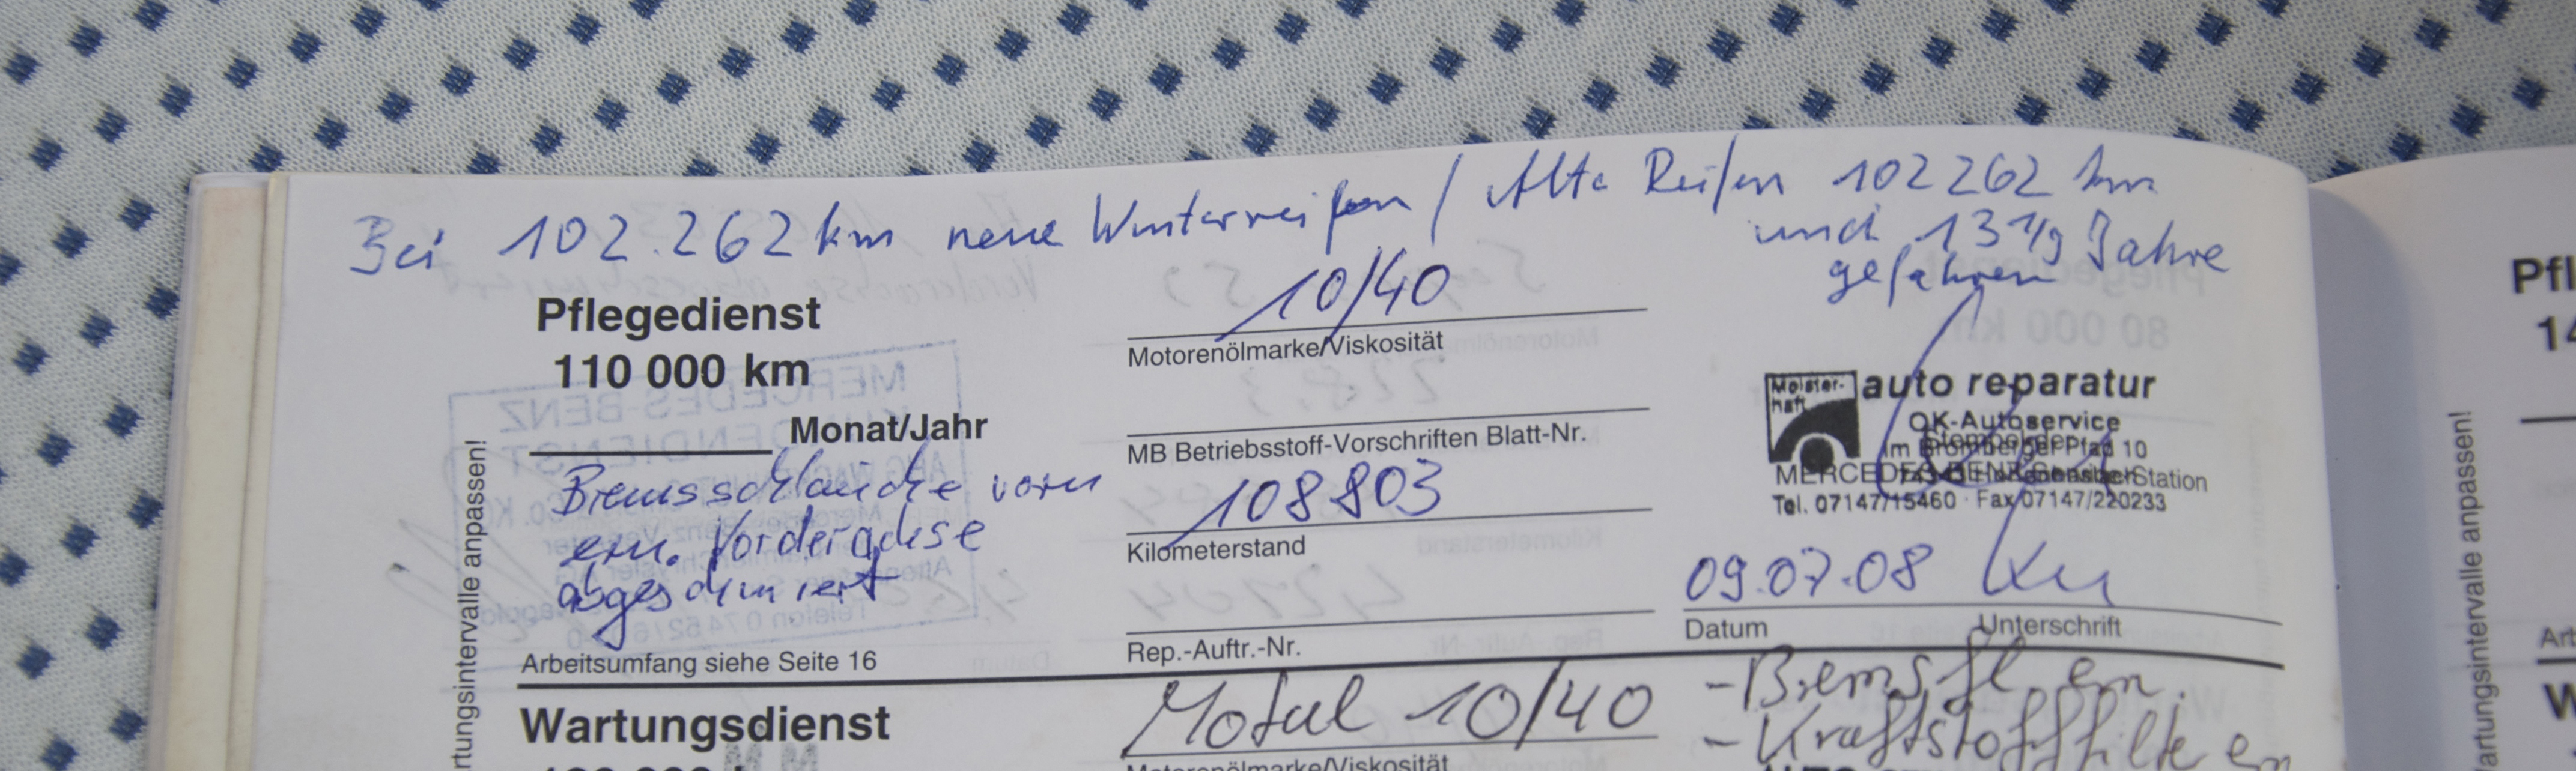 Bei 102.262 km neue Winterreifen / Alte Reifen 102262 km
und 13 Jahre
gefahren
Pflegedienst
110 000 km
Monat/Jahr
Bremsschläuche vorn
ern. Vorderachse
abgeschmiert
Arbeitsumfang siehe Seite 16
10/40
Motorenölmarke/Viskosität
MB Betriebsstoff-Vorschriften Blatt-Nr.
108803
Kilometerstand
Rep.-Auftr.-Nr.
Meister-
haft
auto reparatur
OK-Autoservice
Im Bromberger Pfad 10
MERCEDES-BENZ Station
Tel. 07147/15460 · Fax 07147/220233
09.07.08
Datum
Unterschrift
Wartungsdienst
Motul 10/40
Motorenölmarke/Viskosität
- Bremsfl. ern.
- Kraftstofffilter ern
rtungsintervalle anpassen!
Pfl
14
artungsintervalle anpassen!
Ar
W